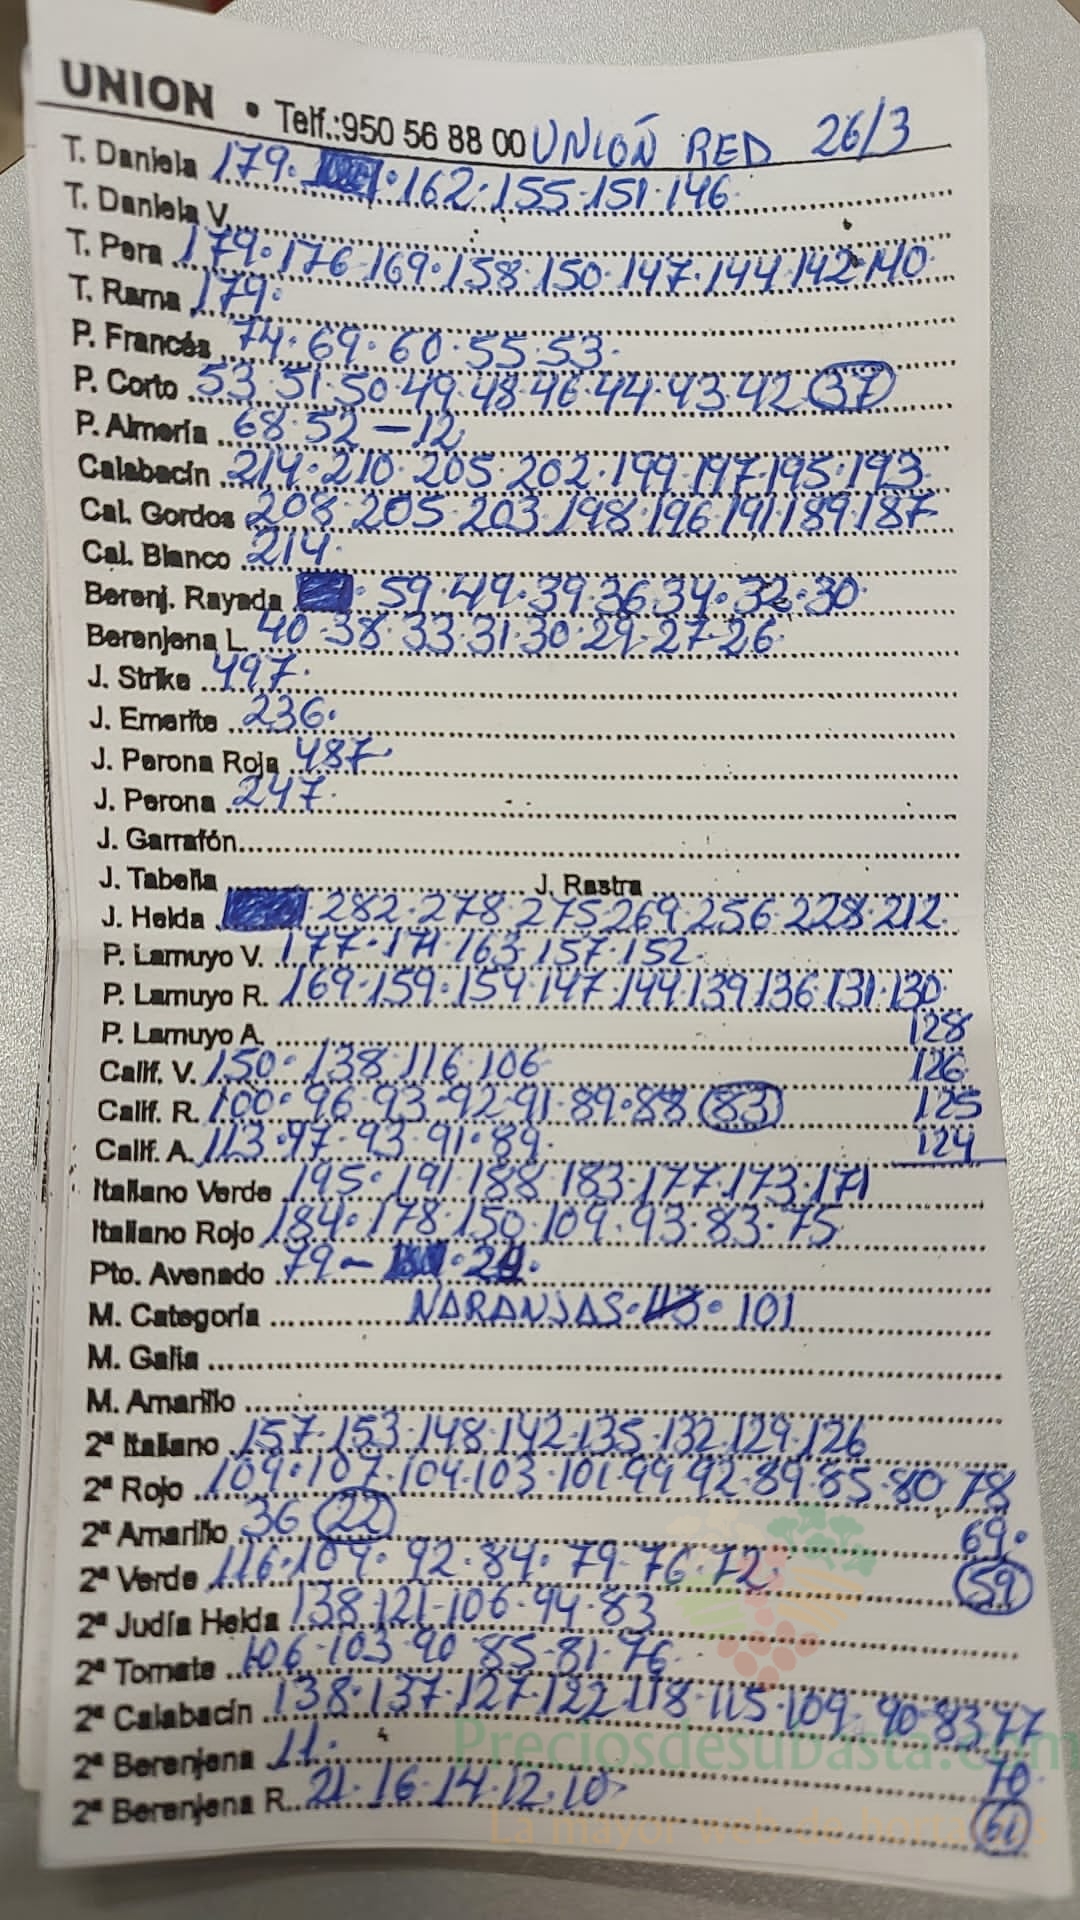 UNION • Telf.:950 56 88 00 UNIÓN RED 26/3
T. Daniela 179· ·162·155·151·146
T. Daniela V.
T. Pera 179·176·169·158·150·147·144·142·140·
T. Rama 179·
P. Francés 74·69·60·55·53·
P. Corto 53·51·50·49·48·46·44·43·42 37
P. Almería 68·52 — 12
Calabacín 214·210·205·202·199·197·195·193
Cal. Gordos 208·205·203·198·196·191·189·187
Cal. Blanco 214·
Berenj. Rayada · 59·49·39·36·34·32·30·
Berenjena L. 40·38·33·31·30·29·27·26·
J. Strike 497·
J. Emerite 236·
J. Perona Roja 487·
J. Perona 247·
J. Garrafón
J. Tabella J. Rastra
J. Helda 282·278·275·269·256·228·212
P. Lamuyo V. 177·171·163·157·152
P. Lamuyo R. 169·159·154·147·144·139·136·131·130
P. Lamuyo A. 128
Calif. V. 150·138·116·106 126
Calif. R. 100·96·93·92·91·89·88 83 125
Calif. A. 113·97·93·91·89· 124
Italiano Verde 195·191·188·183·177·173·171
Italiano Rojo 184·178·150·109·93·83·75
Pto. Avenado 79 –
M. Categoría NARANJAS· 113 · 101
M. Galia
M. Amarillo
2ª Italiano 157·153·148·142·135·132·129·126
2ª Rojo 109·107·104·103·101·99·92·89·85·80 78
2ª Amarillo 36 22 69·
2ª Verde 116·109·92·84·79·76·72· 59
2ª Judía Helda 138·121·106·94·83
2ª Tomate 106·103·90·85·81·76·
2ª Calabacín 138·137·127·122·118·115·109·90·83·77
2ª Berenjena 11· 70·
2ª Berenjena R. 21·16·14·12·10 61
Preciosdesubasta.com
La mayor web de hortalizas